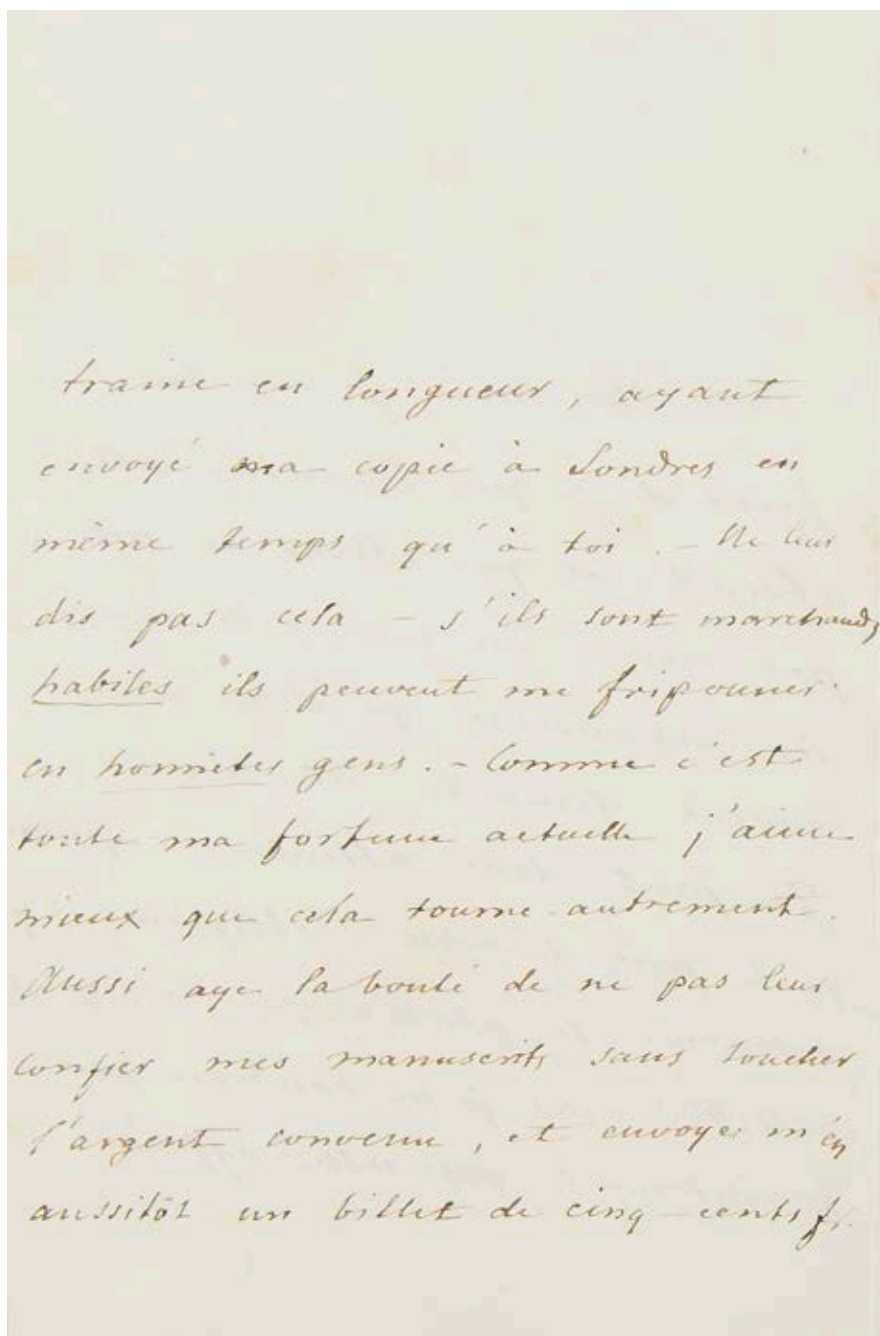 traine en longueur, ayant
envoyé ma copie à Londres en
même temps qu'à toi. – Ne leur
dis pas cela – s'ils sont marchands
habiles ils peuvent me friponner
en honnêtes gens. – Comme c'est
toute ma fortune actuelle j'aime
mieux que cela tourne autrement.
Aussi aye la bonté de ne pas leur
confier mes manuscrits sans toucher
l'argent convenu, et envoyer m'en
aussitôt un billet de cinq cents fr.